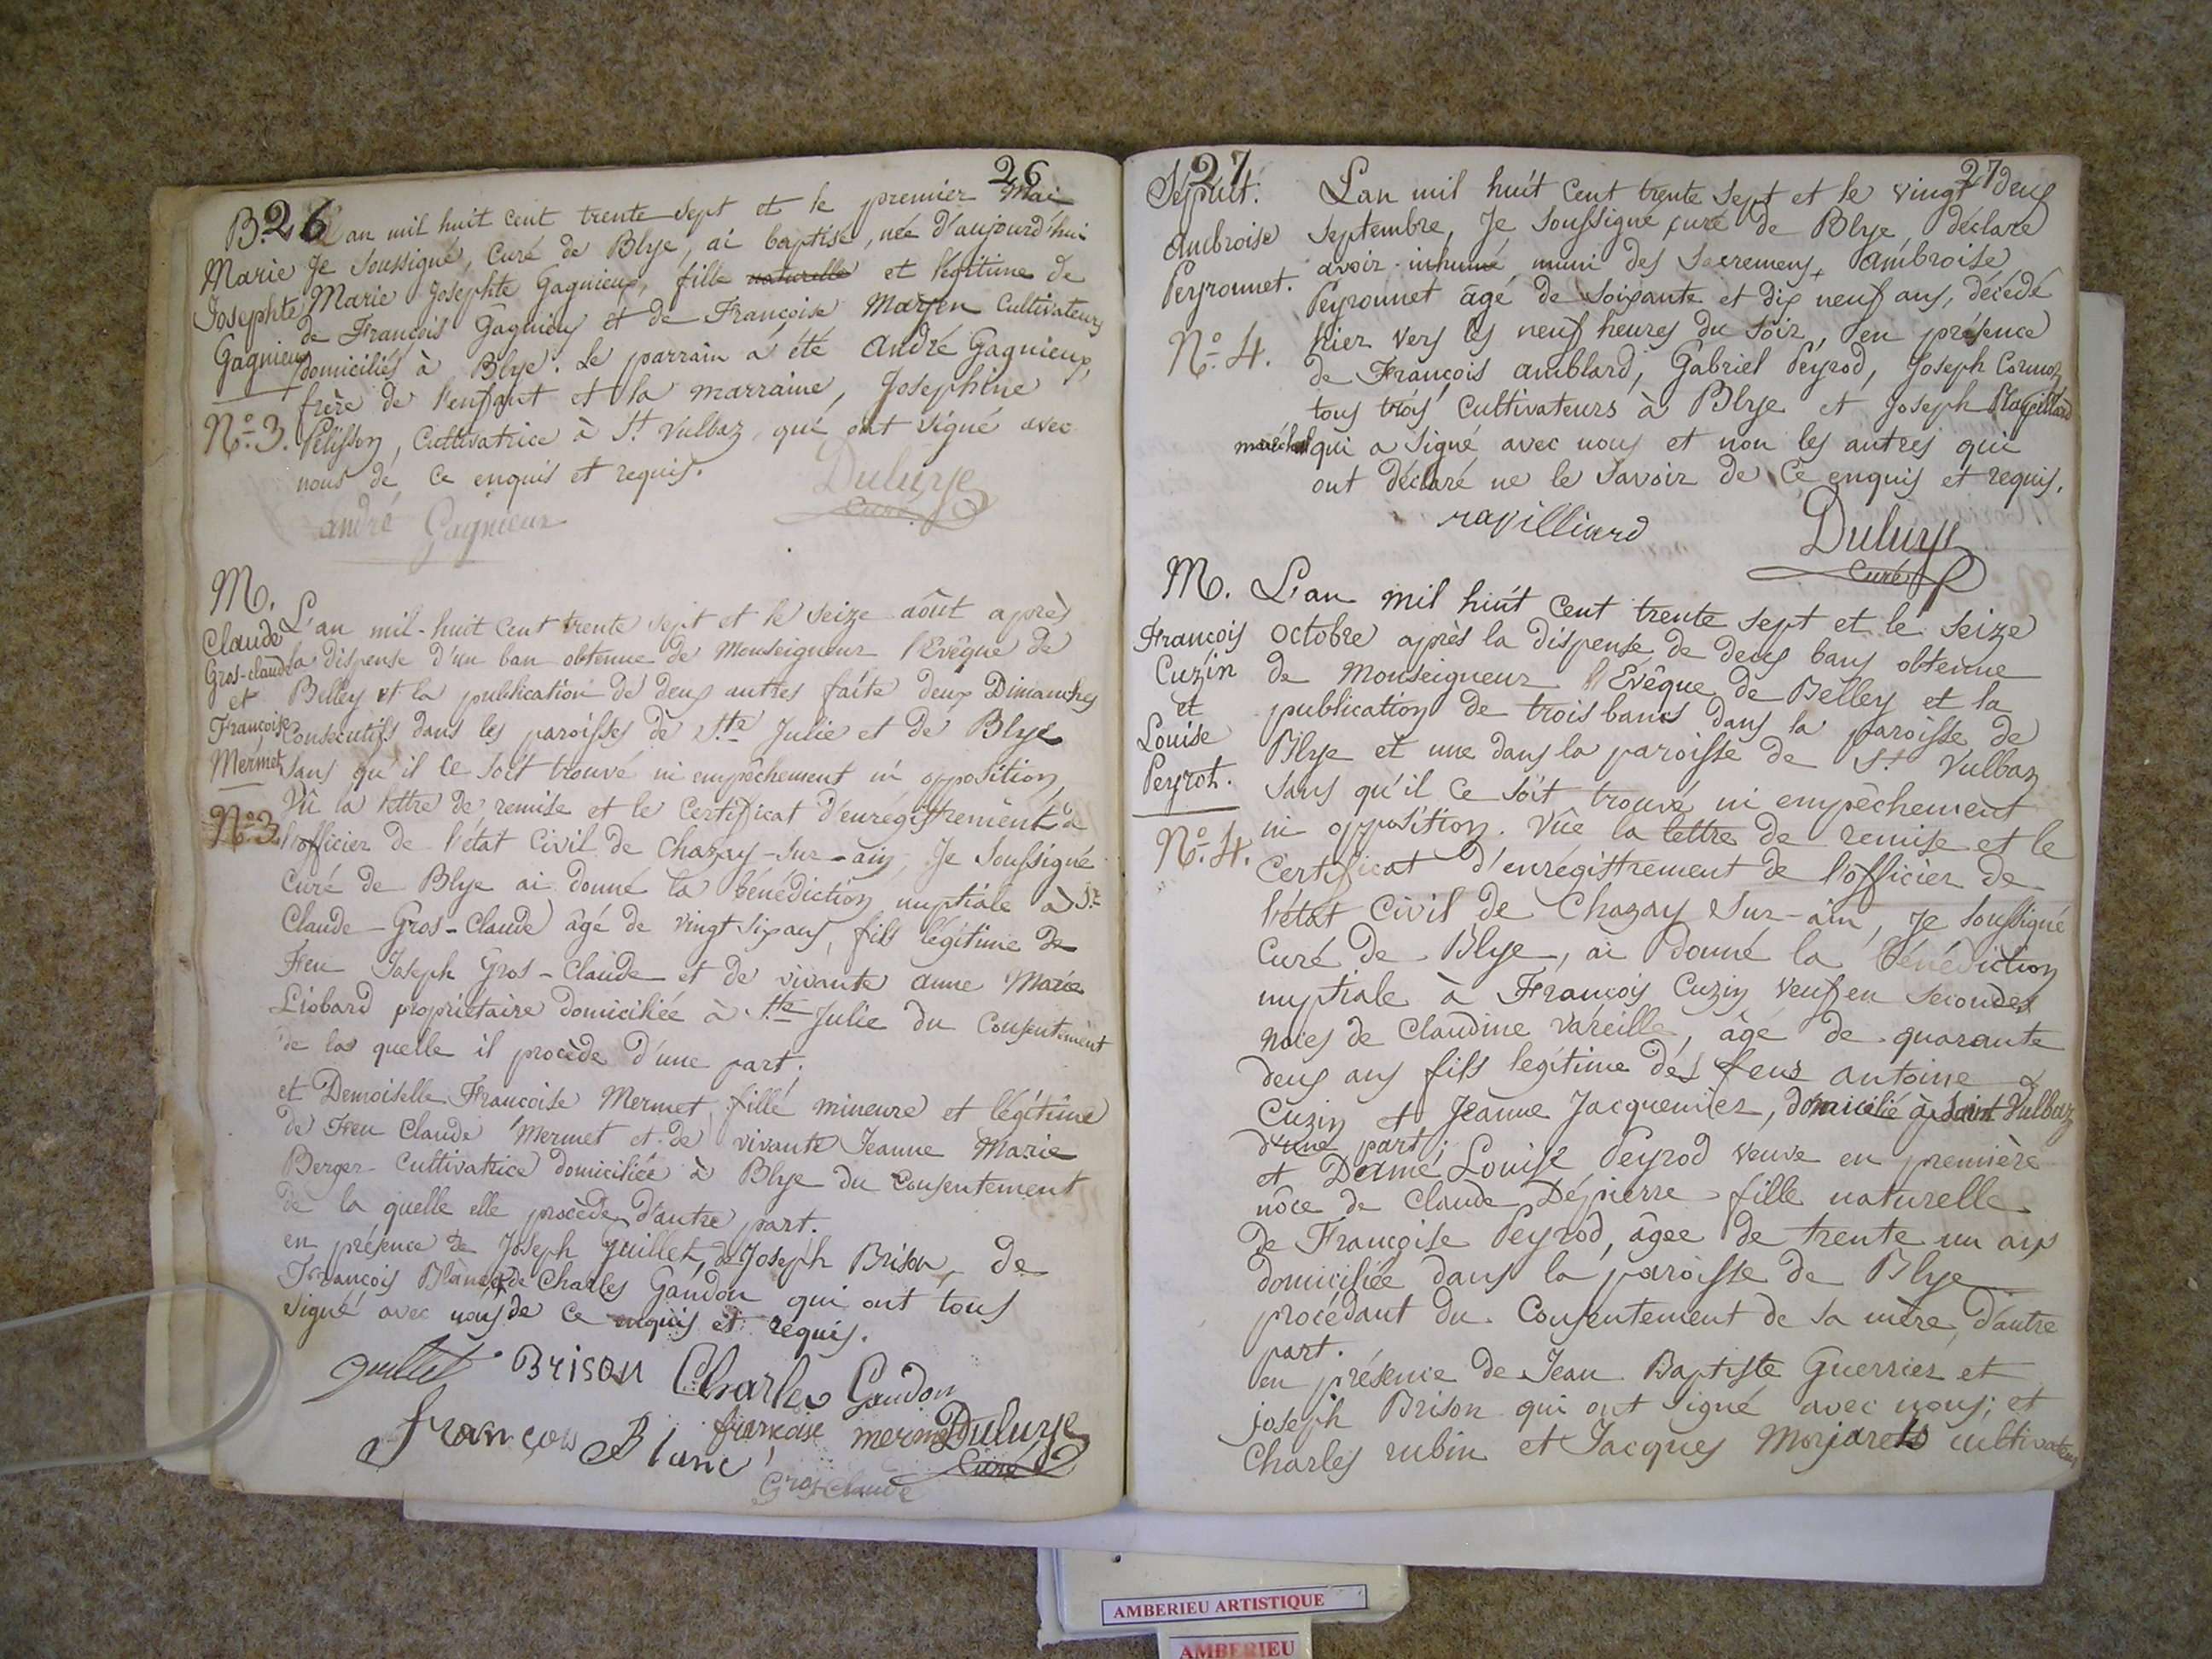 26
B. 26 L'an mil huit cent trente sept et le premier Mai
Marie Je soussigné, Curé de Blye, ai baptisé, née d'aujourd'hui
Josephte Marie Josephte Gagnieux, fille naturelle et légitime de
de François Gagnieux et de Françoise Cultivateurs
Gagnieux domiciliés à Blye. Le parrain a été André Gagnieux,
frère de l'enfant et la marraine, Josephine
N.o 3. Pelisson, Cultivatrice à St. Vulbaz, qui ont signé avec
nous de ce enquis et requis.
andré Gagnieux
Duluye
Curé
M.
Claude
Gros-claude
et
Françoise
Mermet
N.o 3
L'an mil-huit Cent trente sept et le seize aôut après
la dispense d'un ban obtenue de Monseigneur l'Evêque de
Belley et la publication de deux autres faite deux Dimanches
Consécutifs dans les paroisses de Ste. Julie et de Blye
sans qu'il ce soit trouvé ni empêchement ni opposition,
Vû la lettre de remise et le Certificat d'enregistrement de
l'officier de l'état Civil de Chazay-sur-ain, Je soussigné
Curé de Blye ai donné la bénédiction nuptiale à Sr.
Claude-Gros-Claude âgé de vingt six ans, fils légitime de
Feu Joseph Gros-Claude et de vivante anne Marie
Liobard propriétaire domiciliée à Ste Julie du Consentement
de la quelle il procède d'une part;
et Demoiselle Françoise Mermet fille mineure et légitime
de Feu Claude Mermet et de vivante Jeanne Marie
Berger Cultivatrice domiciliée à Blye du Consentement
de la quelle elle procède d'autre part.
en présence de Joseph juillet, de Joseph Brison, de
François Blanc & de Charles Gandon qui ont tous
signé avec nous de ce enquis et requis.
juillet Brison Charles Gandon
françois Blanc francoise mermet Duluye
Curé
Gros claude
27
27
Sépult.
Ambroise
Peyronnet.
N.o 4.
L'an mil huit Cent trente sept et le vingt deux
septembre, Je soussigné curé de Blye, déclare
avoir inhumé, muni des sacremens, Ambroise
Peyronnet âgé de soixante et dix neuf ans, décédé
hier vers les neuf heures du soir, en présence
de François amblard, Gabriel Peyrod, Joseph Cormoz
tous trois Cultivateurs à Blye et Joseph Rapillard
maréchal qui a signé avec nous et non les autres qui
ont déclaré ne le savoir de ce enquis et requis.
rapilliard
Duluye
Curé
M.
François
Cuzin
et
Louise
Peyrot.
N.o 4.
L'an mil huit Cent trente sept et le seize
octobre après la dispense de deux bans obtenue
de Monseigneur l'Evêque de Belley et la
publication de trois bancs dans la paroisse de
Blye et une dans la paroisse de St Vulbaz
sans qu'il ce soit trouvé ni empèchement
ni opposition. Vûe la lettre de remise et le
Certificat d'enrégistrement de l'officier de
l'état Civil de Chazay sur-ain, Je soussigné
Curé de Blye, ai donné la bénédiction
nuptiale à François Cuzin veuf en secondes
noces de Claudine Vareille, âgé de quarante
deux ans fils légitime des feus antoine
Cuzin et Jeanne Jacquemier, domicilié à saint Vulbaz
d'une part;
et Dame Louise Peyrod veuve en première
nôce de Claude Dépierre fille naturelle
de Françoise Peyrod, âgée de trente un ans
domiciliée dans la paroisse de Blye
procédant du Consentement de sa mère, d'autre
part.
en présence de Jean Baptiste Guerrier et
joseph Brison qui ont signé avec nous; et
Charles rubin et Jacques Morjaret cultivateurs
AMBERIEU ARTISTIQUE
AMBERIEU